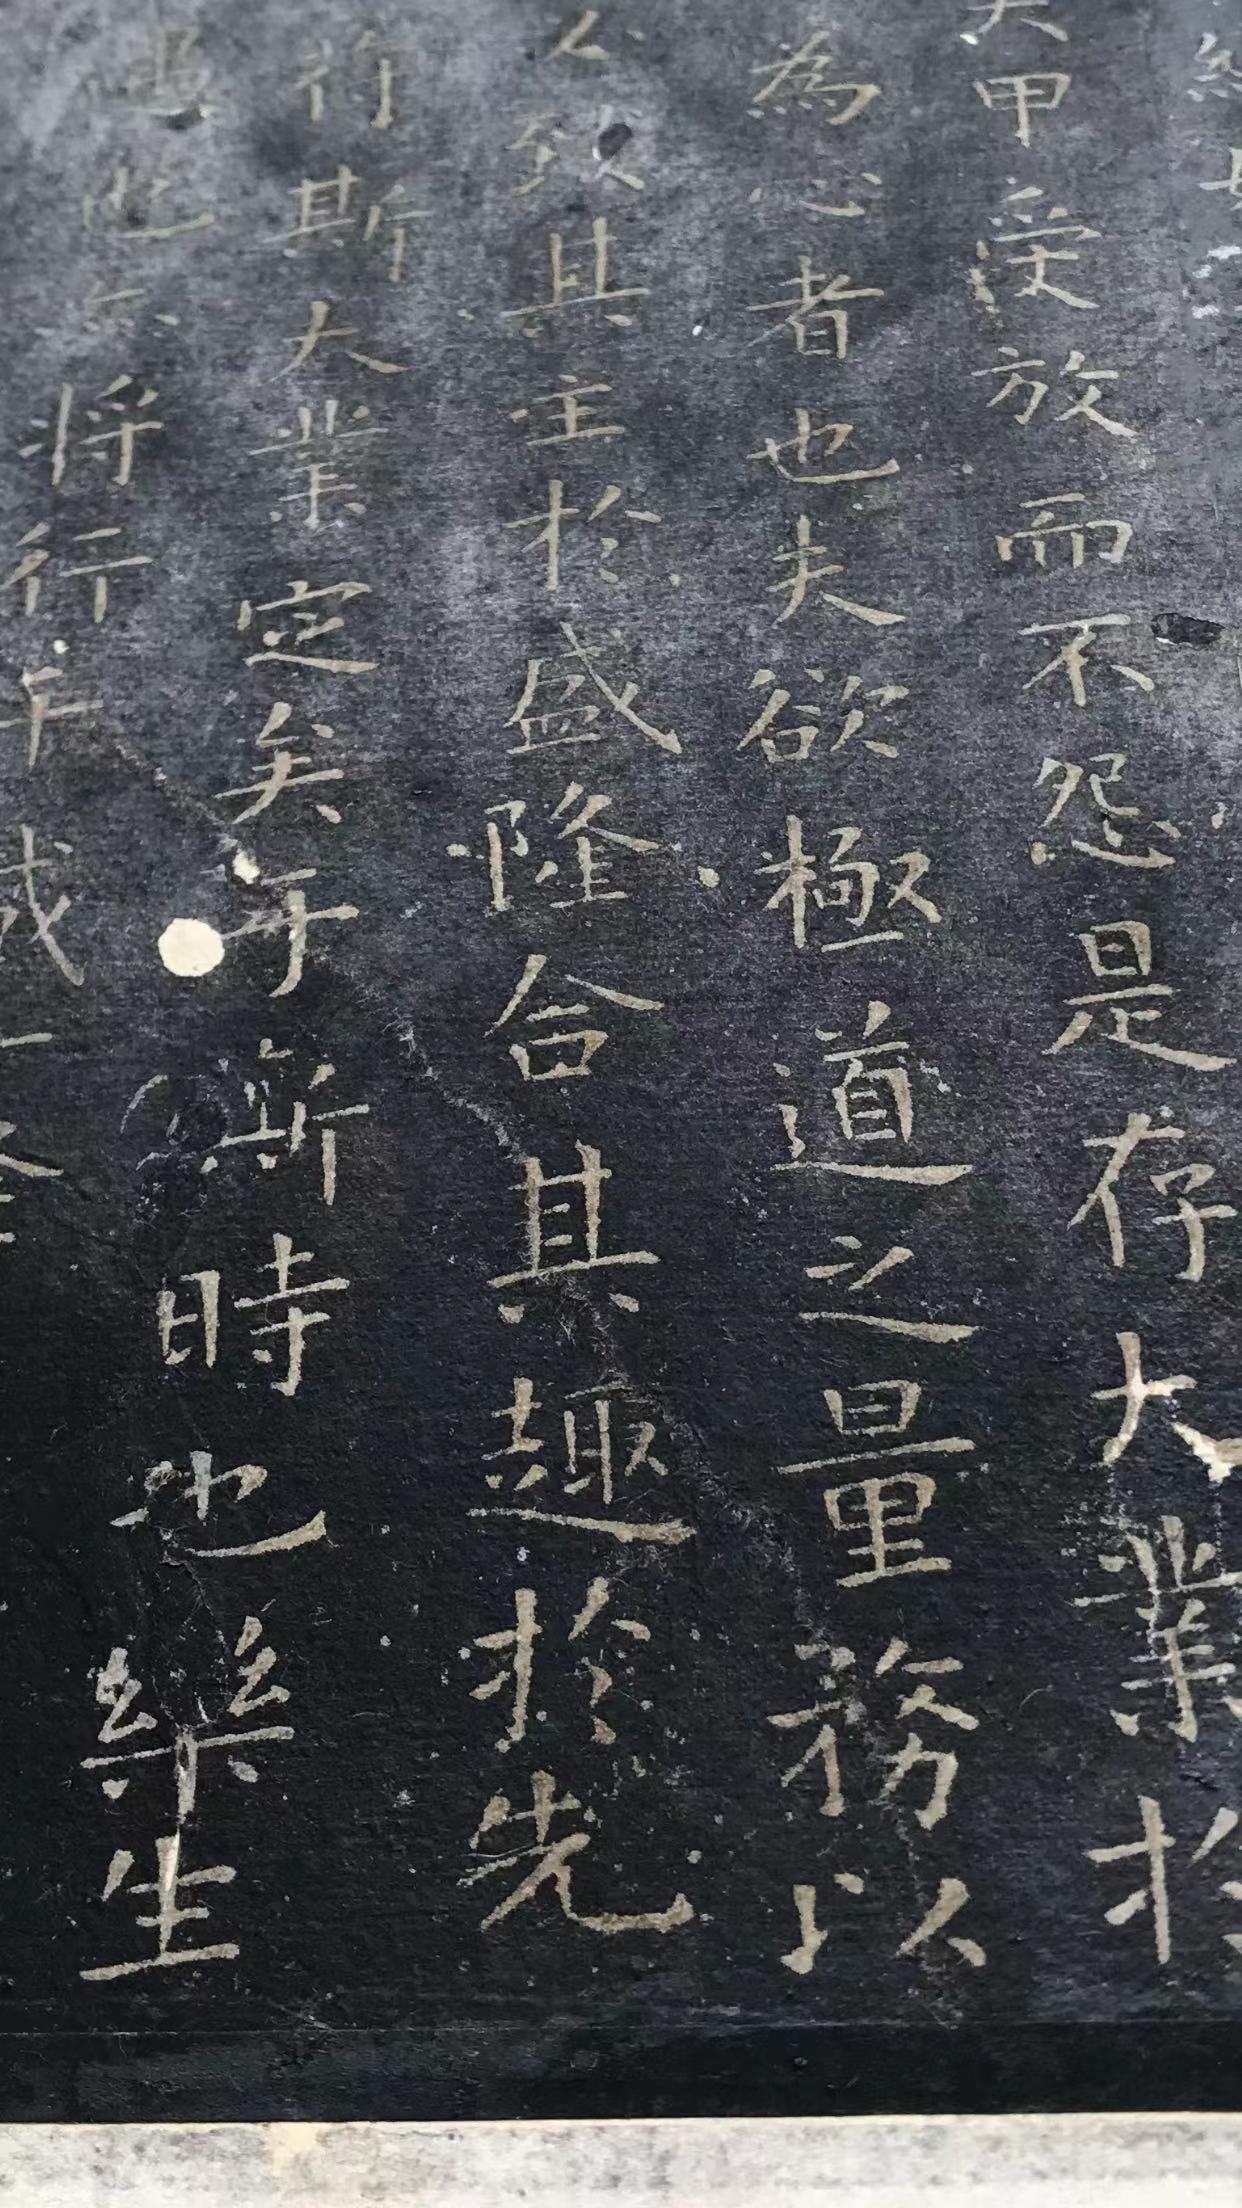 甲受放而不怨是存大業於
為心者也夫欲極道之量務以
致其主於盛隆合其趣於先
符斯大業定矣于斯時也樂生
遇也亦將行千載一隆